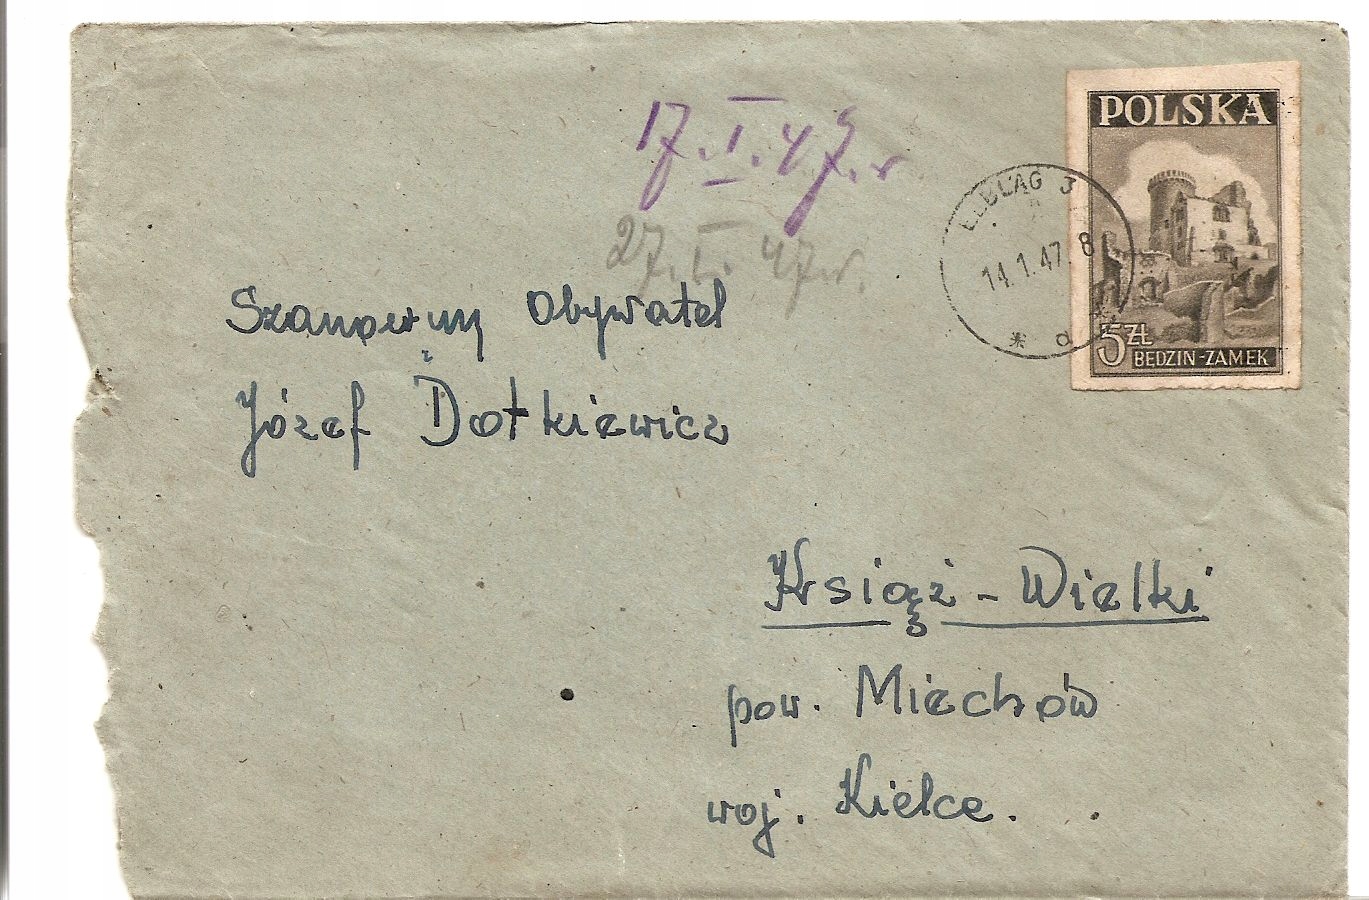 17.I.47.r
27.I.47r.
POLSKA
ELBLĄG 3
14.1.47. 8
* d
5 ZŁ
BĘDZIN-ZAMEK
Szanowny Obywatel
Józef Dotkiewicz
Książ - Wielki
pow. Miechów
woj. Kielce.